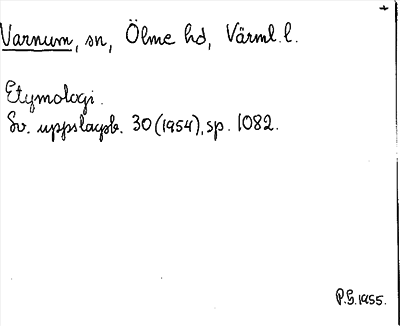 Varnum, sn, Ölme hd, Värml. l.
Etymologi.
Sv. uppslagsb. 30 (1954), sp. 1082.
P.G. 1955.